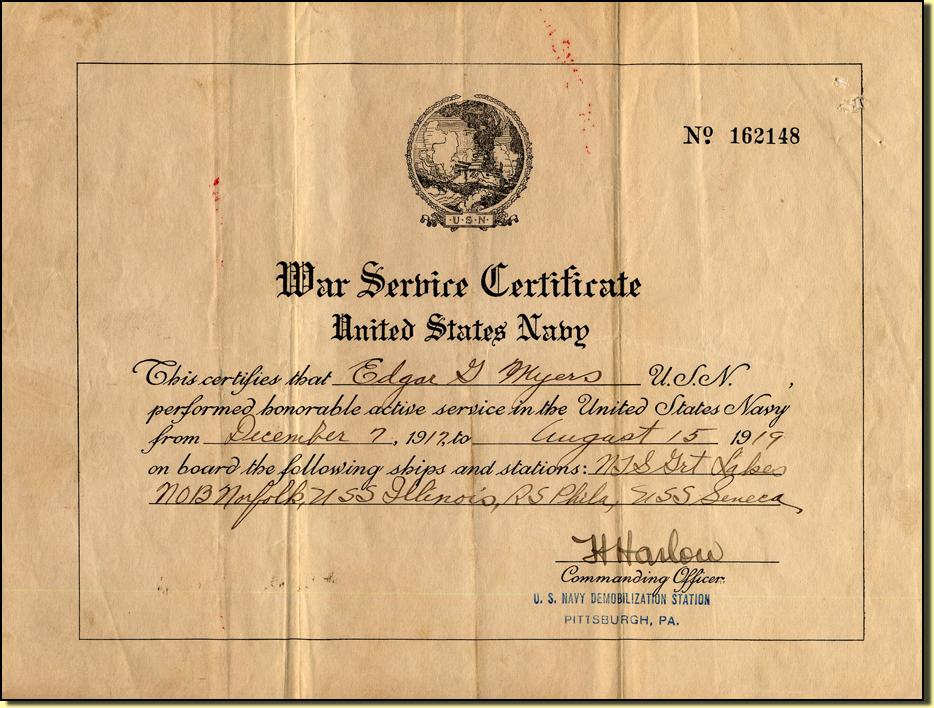 U.S.N.
Nº 162148
War Service Certificate
United States Navy
This certifies that Edgar G Myers U.S.N.,
performed honorable active service in the United States Navy
from December 7, 1917, to August 15 1919
on board the following ships and stations: NTS Grt Lakes
NOB Norfolk, USS Illinois, RS Phila, USS Seneca,
H Harlow
Commanding Officer.
U. S. NAVY DEMOBILIZATION STATION
PITTSBURGH, PA.